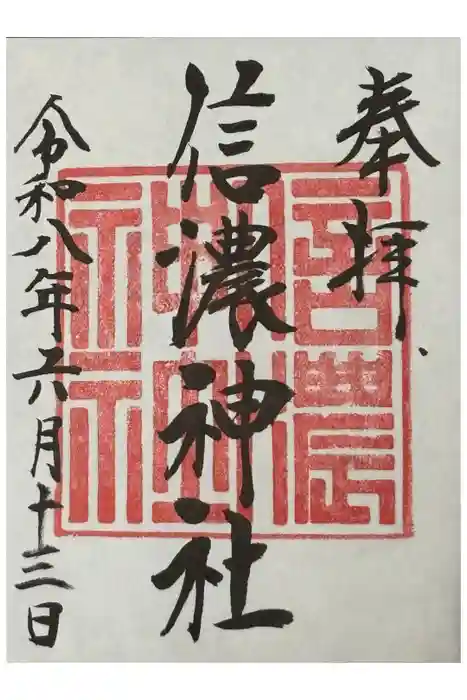 奉拝
信濃神社
令和八年六月十三日